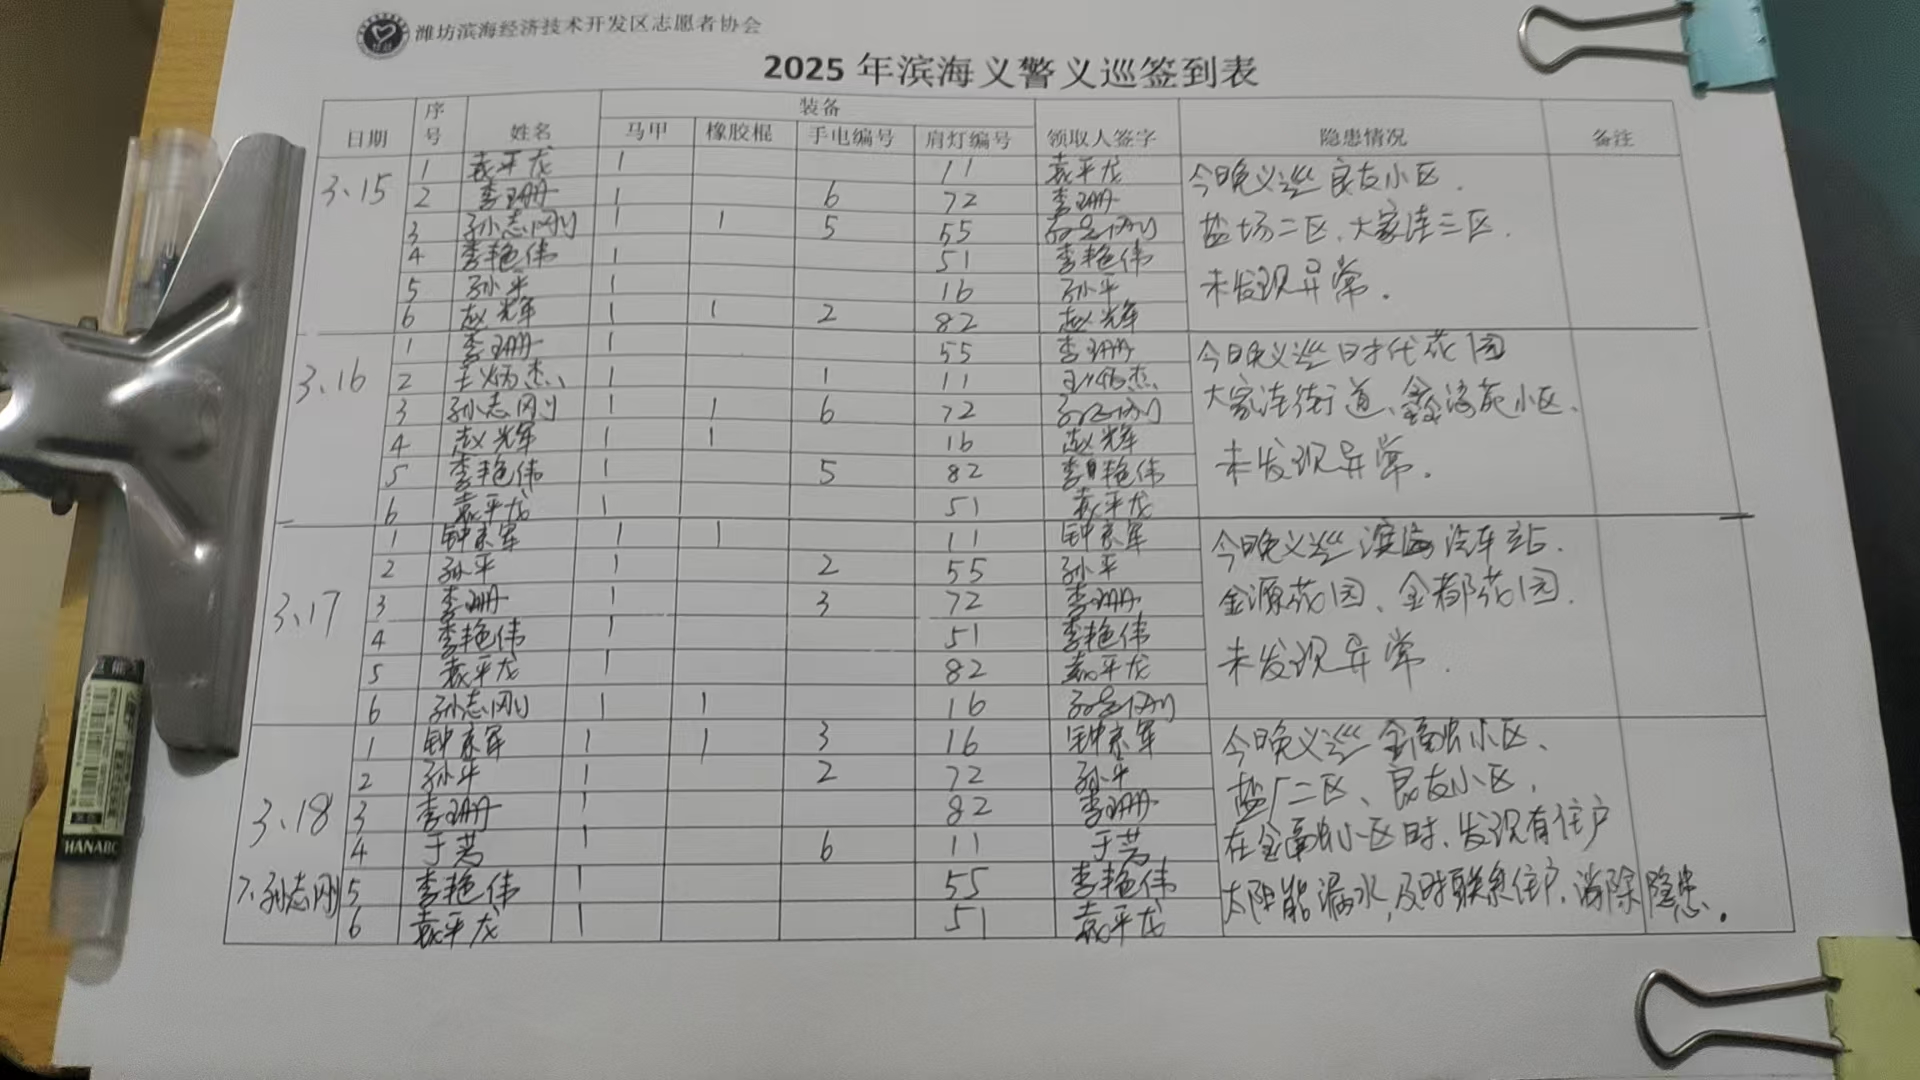 潍坊滨海经济技术开发区志愿者协会
2025年滨海义警义巡签到表
日期 序号 姓名 装备 领取人签字 隐患情况 备注
马甲 橡胶棍 手电编号 肩灯编号
3、15
1 袁平龙 1 11 袁平龙
2 李珊珊 1 6 72 李珊珊
3 孙志刚 1 1 5 55 孙志刚
4 李艳伟 1 51 李艳伟
5 孙平 1 16 孙平
6 赵辉 1 1 2 82 赵辉
今日晚义巡良友小区.
盐场二区、大家洼三区.
未发现异常.
3、16
1 李珊珊 1 55 李珊珊
2 王炳杰 1 1 11 王炳杰
3 孙志刚 1 1 6 72 孙志刚
4 赵辉 1 1 16 赵辉
5 李艳伟 1 5 82 李艳伟
6 袁平龙 1 51 袁平龙
今日晚义巡时代花园
大家洼街道、鑫海苑小区、
未发现异常.
3、17
1 钟京军 1 1 11 钟京军
2 孙平 1 2 55 孙平
3 李珊珊 1 3 72 李珊珊
4 李艳伟 1 51 李艳伟
5 袁平龙 1 82 袁平龙
6 孙志刚 1 1 16 孙志刚
今日晚义巡滨海汽车站.
金源花园、金都花园.
未发现异常.
3、18
1 钟京军 1 1 3 16 钟京军
2 孙平 1 2 72 孙平
3 李珊珊 1 82 李珊珊
4 于 1 6 11 于
5 李艳伟 1 55 李艳伟
6 袁平龙 1 51 袁平龙
7、孙志刚
今日晚义巡金 小区、
盐厂二区、良友小区,
在金 小区时、发现有住户
太阳能漏水,及时联系住户、消除隐患.
HANABC